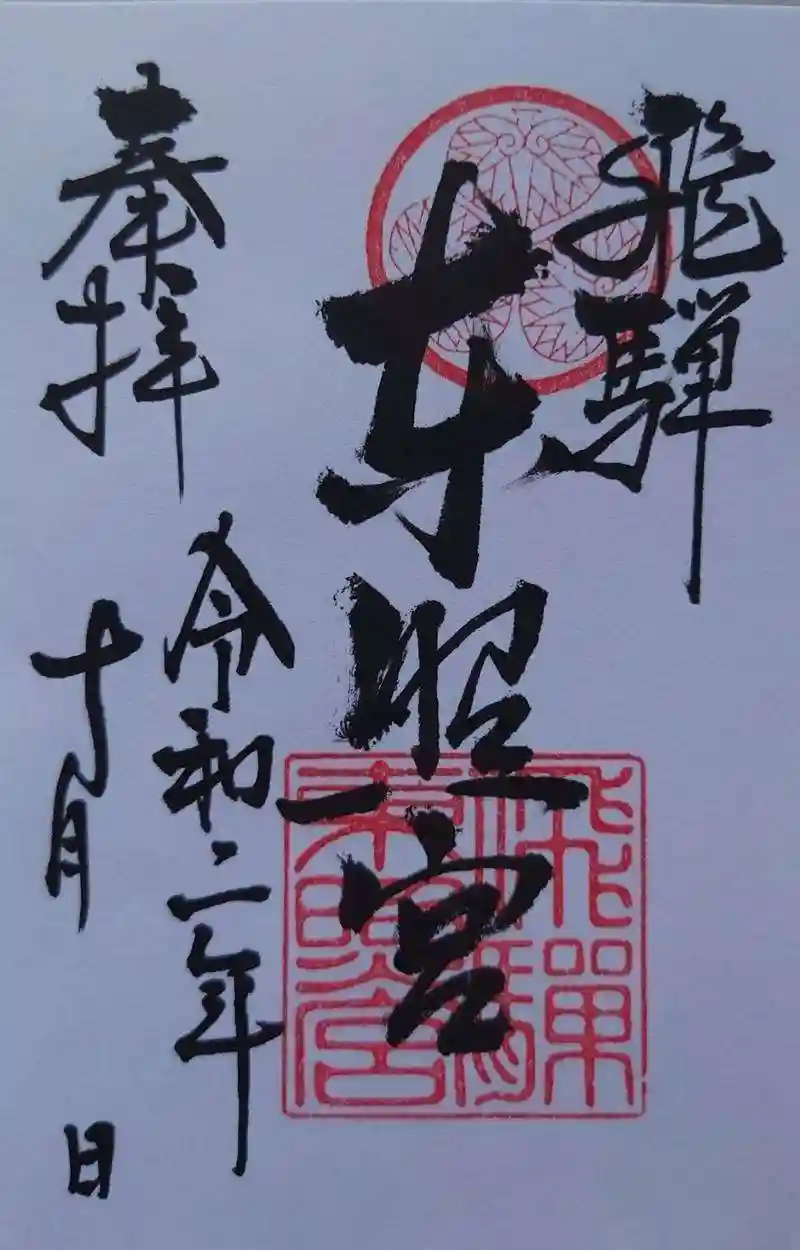 飛騨
東照宮
飛騨東照宮
奉拝
令和二年
十月 日